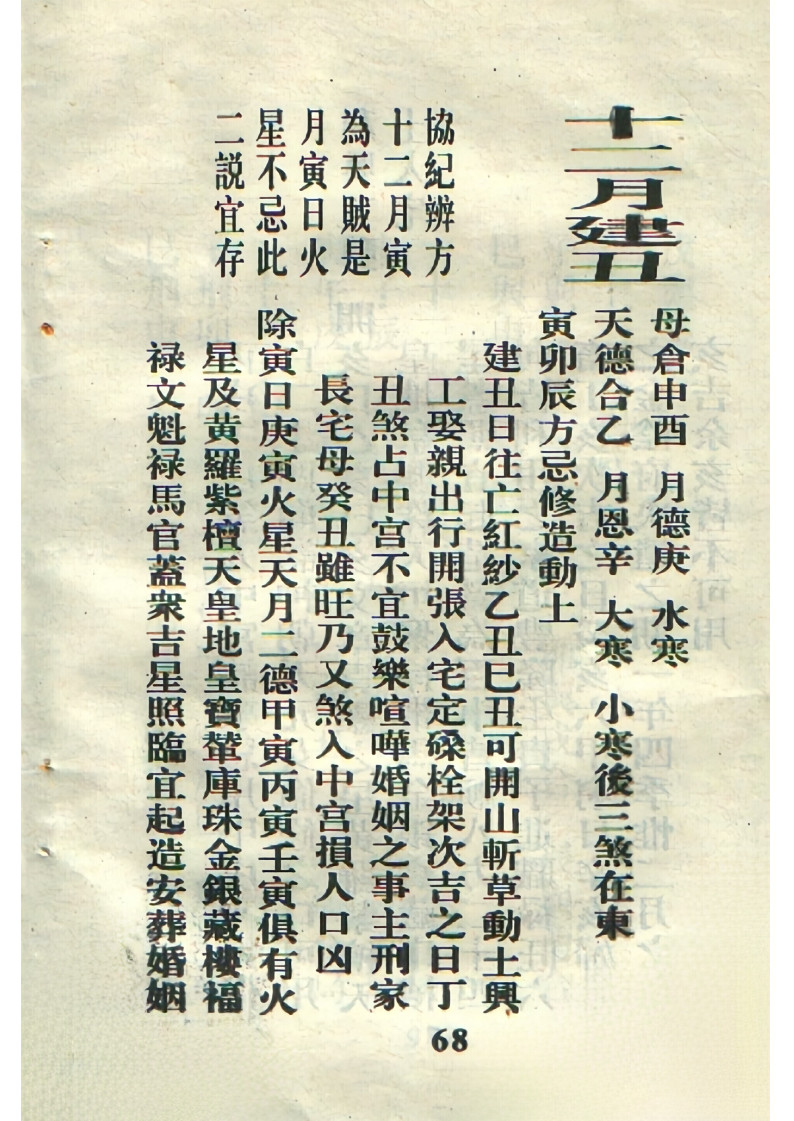 十二月建丑
母倉申酉 月德庚 水寒
天德合乙 月恩辛 大寒 小寒後三煞在東
寅卯辰方忌修造動土
建丑日往亡紅紗乙丑巳丑可開山斬草動土興
工娶親出行開張入宅定磉栓架次吉之日丁
丑煞占中宮不宜鼓樂喧嘩婚姻之事主刑家
長宅母癸丑雖旺乃又煞入中宮損人口凶
除寅日庚寅火星天月二德甲寅丙寅壬寅俱有火
星及黃羅紫檀天皇地皇寶輦庫珠金銀藏樓福
祿文魁祿馬官蓋衆吉星照臨宜起造安葬婚姻
協紀辨方
十二月寅
為天賊是
月寅日火
星不忌此
二説宜存
68